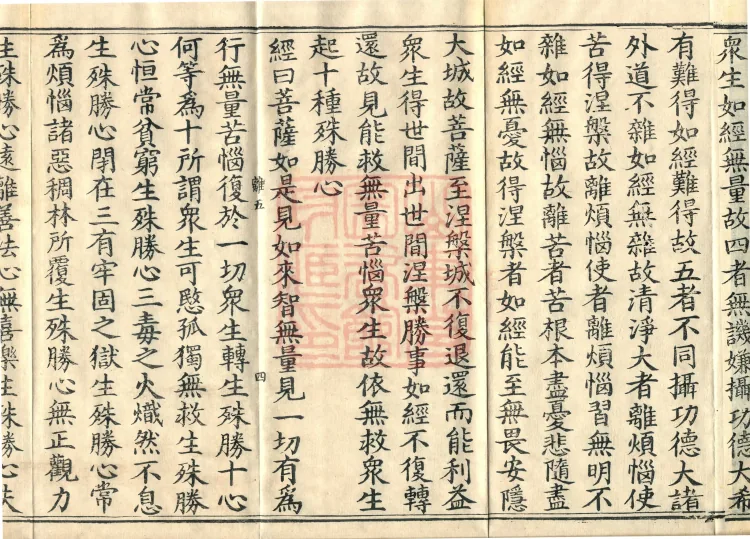 衆生如經無量故四者無譏嫌攝功德大希
有難得如經難得故五者不同攝功德大諸
外道不雜如經無雜故清淨大者離煩惱使
苦得涅槃故離煩惱使者離煩惱習無明不
雜如經無惱故離苦者苦根本盡憂悲隨盡
如經無憂故得涅槃者如經能至無畏安隱
大城故菩薩至涅槃城不復退還而能利益
衆生得世間出世間涅槃勝事如經不復轉
還故見能救無量苦惱衆生故依無救衆生
起十種殊勝心
經曰菩薩如是見如來智無量見一切有爲
雜五
四
行無量苦惱復於一切衆生轉生殊勝十心
何等爲十所謂衆生可愍孤獨無救生殊勝
心恒常貧窮生殊勝心三毒之火熾然不息
生殊勝心閉在三有牢固之獄生殊勝心常
爲煩惱諸惡稠林所覆生殊勝心無正觀力
生殊勝心遠離善法心無喜樂生殊勝心失